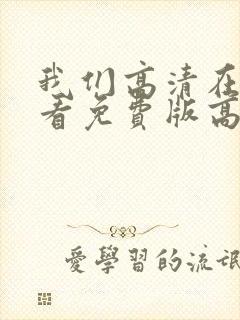 我们高清在
看免费版高
爱學習的流氓